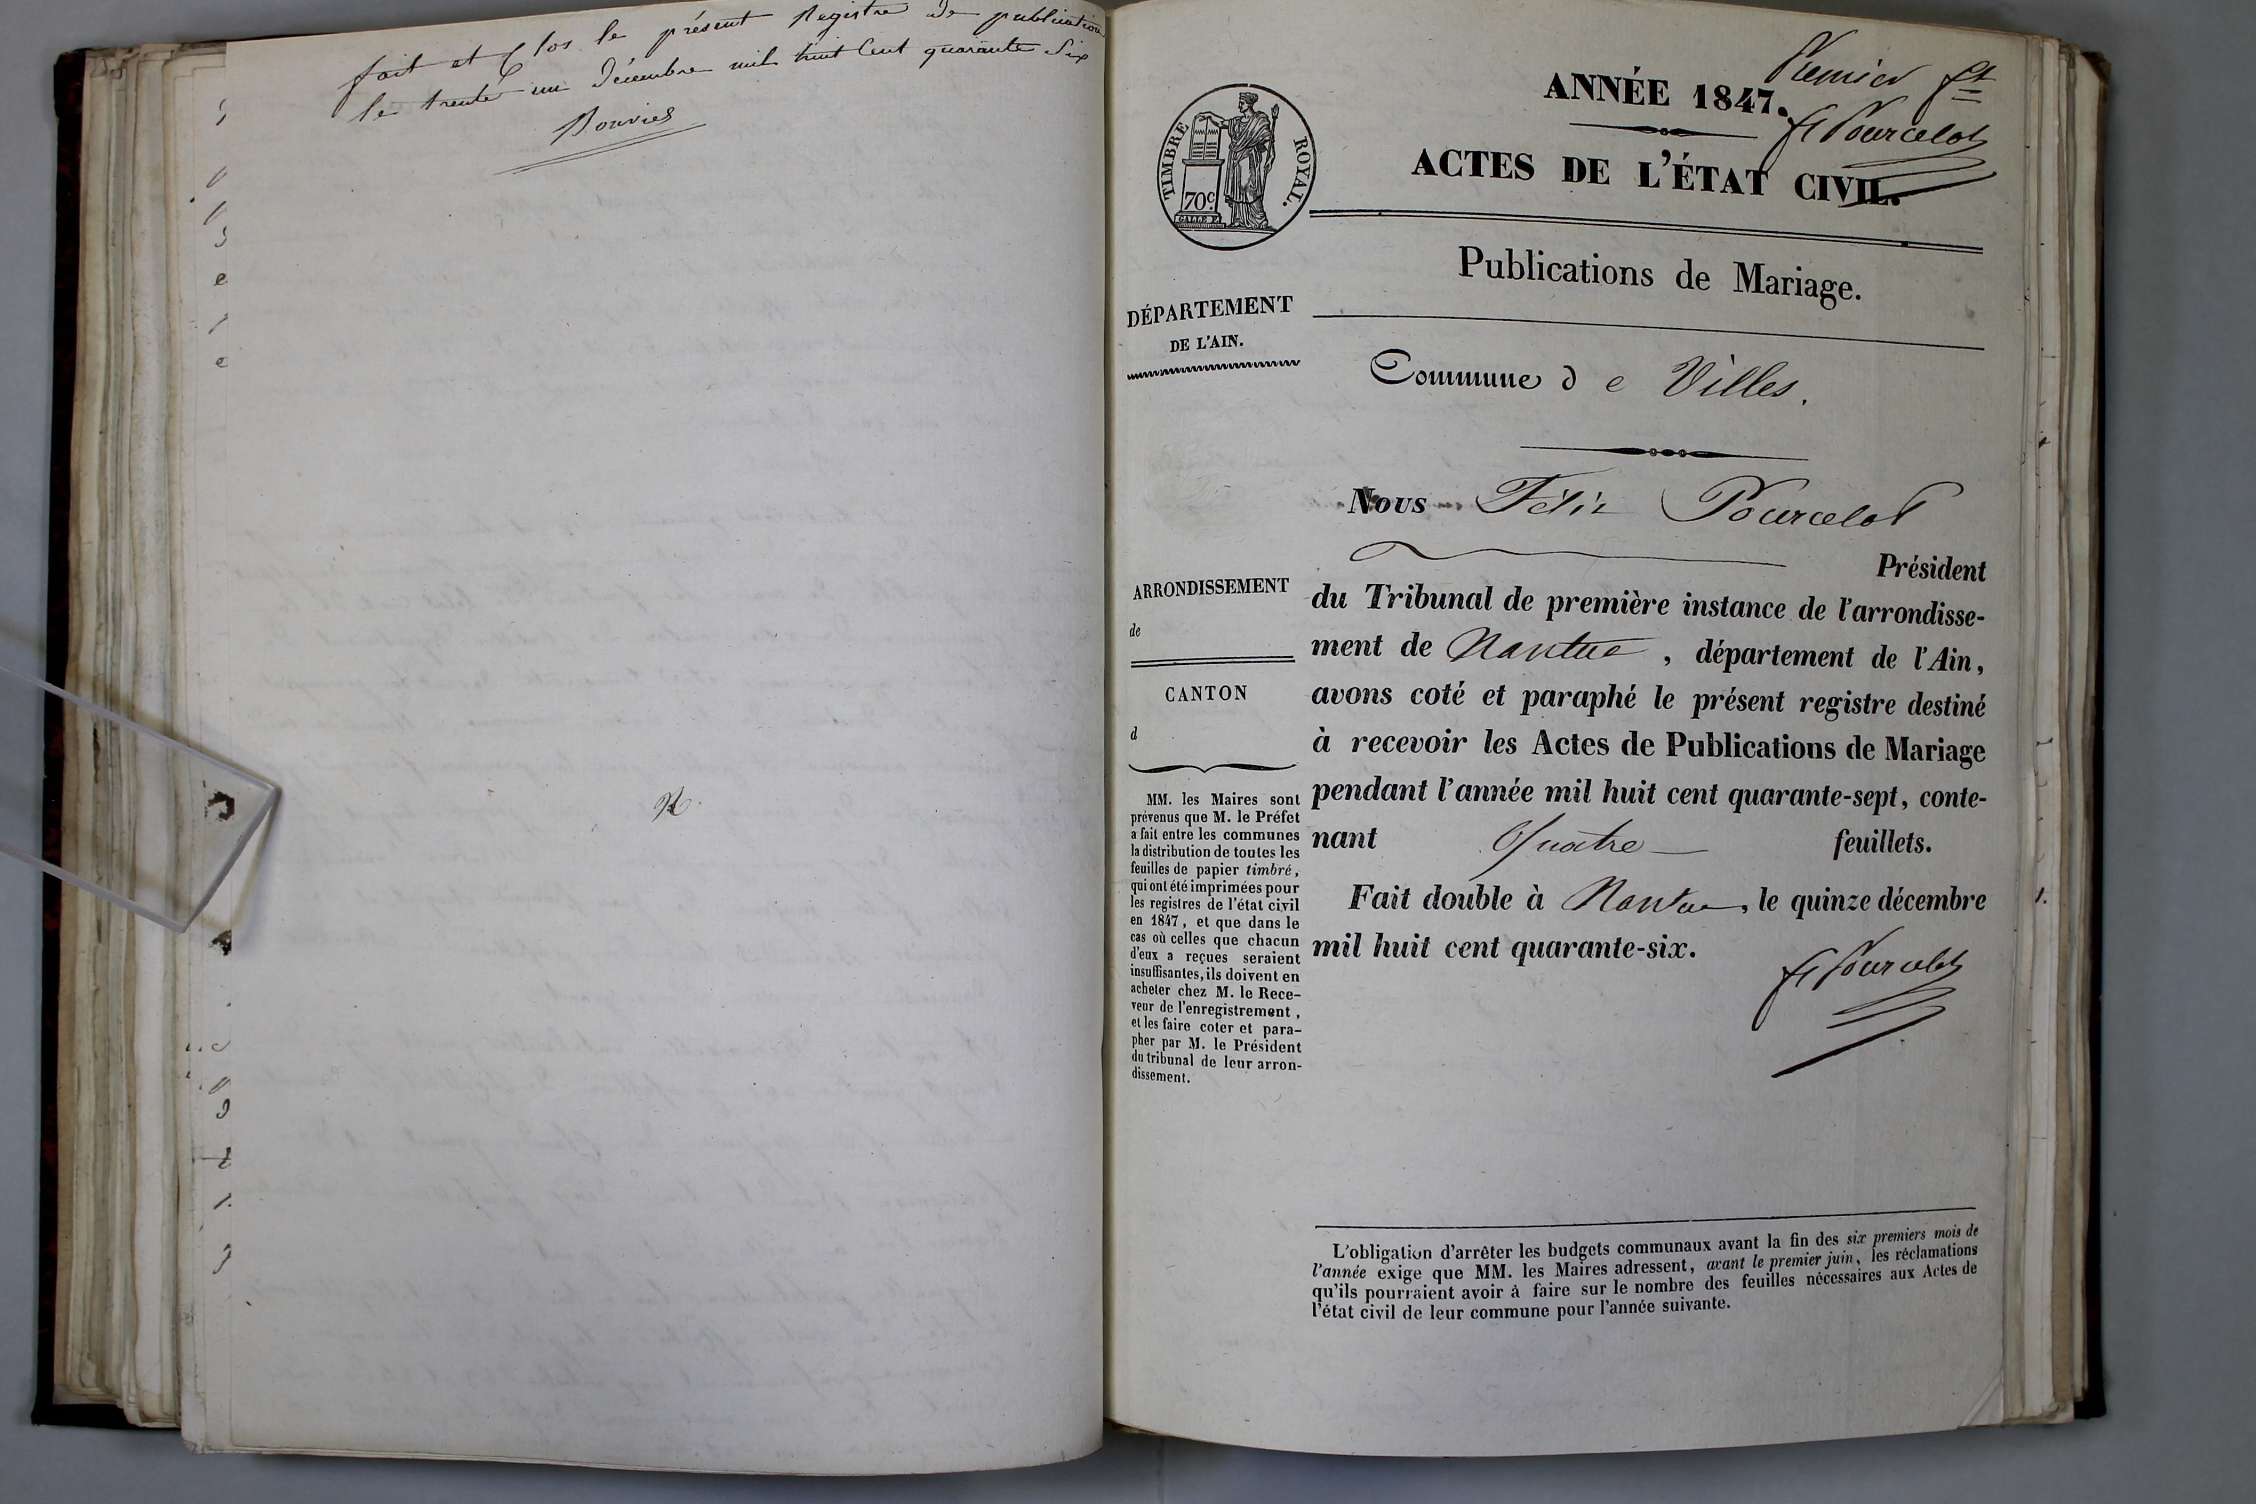 fait et Clos le présent Registre de publication
le trente un Décembre mil huit Cent quarante Six
R
Premier ft
ANNÉE 1847.
F Pourcelot
ACTES DE L'ÉTAT CIVIL.
TIMBRE ROYAL.
70 c.
Publications de Mariage.
DÉPARTEMENT
DE L'AIN.
Commune d e Villes.
Nous Félix Pourcelot
Président
du Tribunal de première instance de l'arrondisse-
ment de Nantua, département de l'Ain,
avons coté et paraphé le présent registre destiné
à recevoir les Actes de Publications de Mariage
pendant l'année mil huit cent quarante-sept, conte-
nant Quatre feuillets.
Fait double à Nantua, le quinze décembre
mil huit cent quarante-six.
F Pourcelot
ARRONDISSEMENT
de
CANTON
d
MM. les Maires sont
prévenus que M. le Préfet
a fait entre les communes
la distribution de toutes les
feuilles de papier timbré,
qui ont été imprimées pour
les registres de l'état civil
en 1847, et que dans le
cas où celles que chacun
d'eux a reçues seraient
insuffisantes, ils doivent en
acheter chez M. le Rece-
veur de l'enregistrement,
et les faire coter et para-
pher par M. le Président
du tribunal de leur arron-
dissement.
L'obligation d'arrêter les budgets communaux avant la fin des six premiers mois de
l'année exige que MM. les Maires adressent, avant le premier juin, les réclamations
qu'ils pourraient avoir à faire sur le nombre des feuilles nécessaires aux Actes de
l'état civil de leur commune pour l'année suivante.